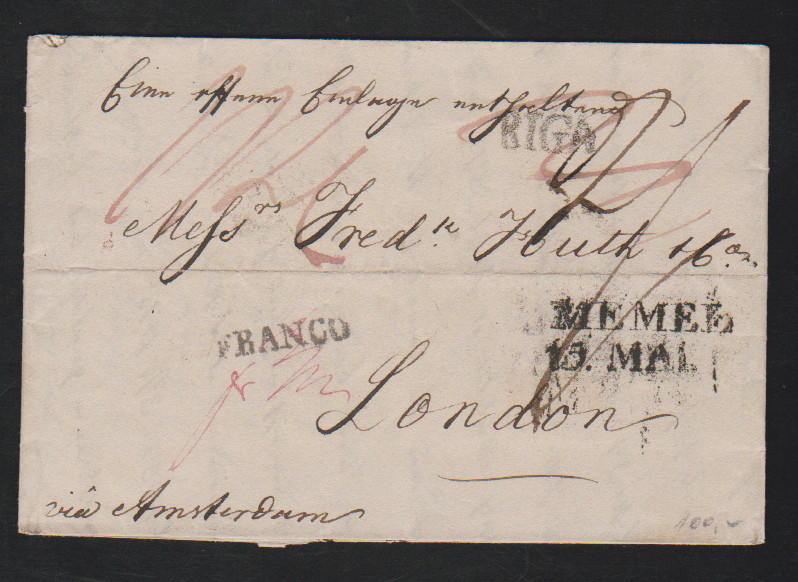 Eine offene Einlage enthaltend
RIGA
Messrs Fredk Huth & Co.
MEMEL
FRANCO
13. MAI.
fr M
London
via Amsterdam
100,-